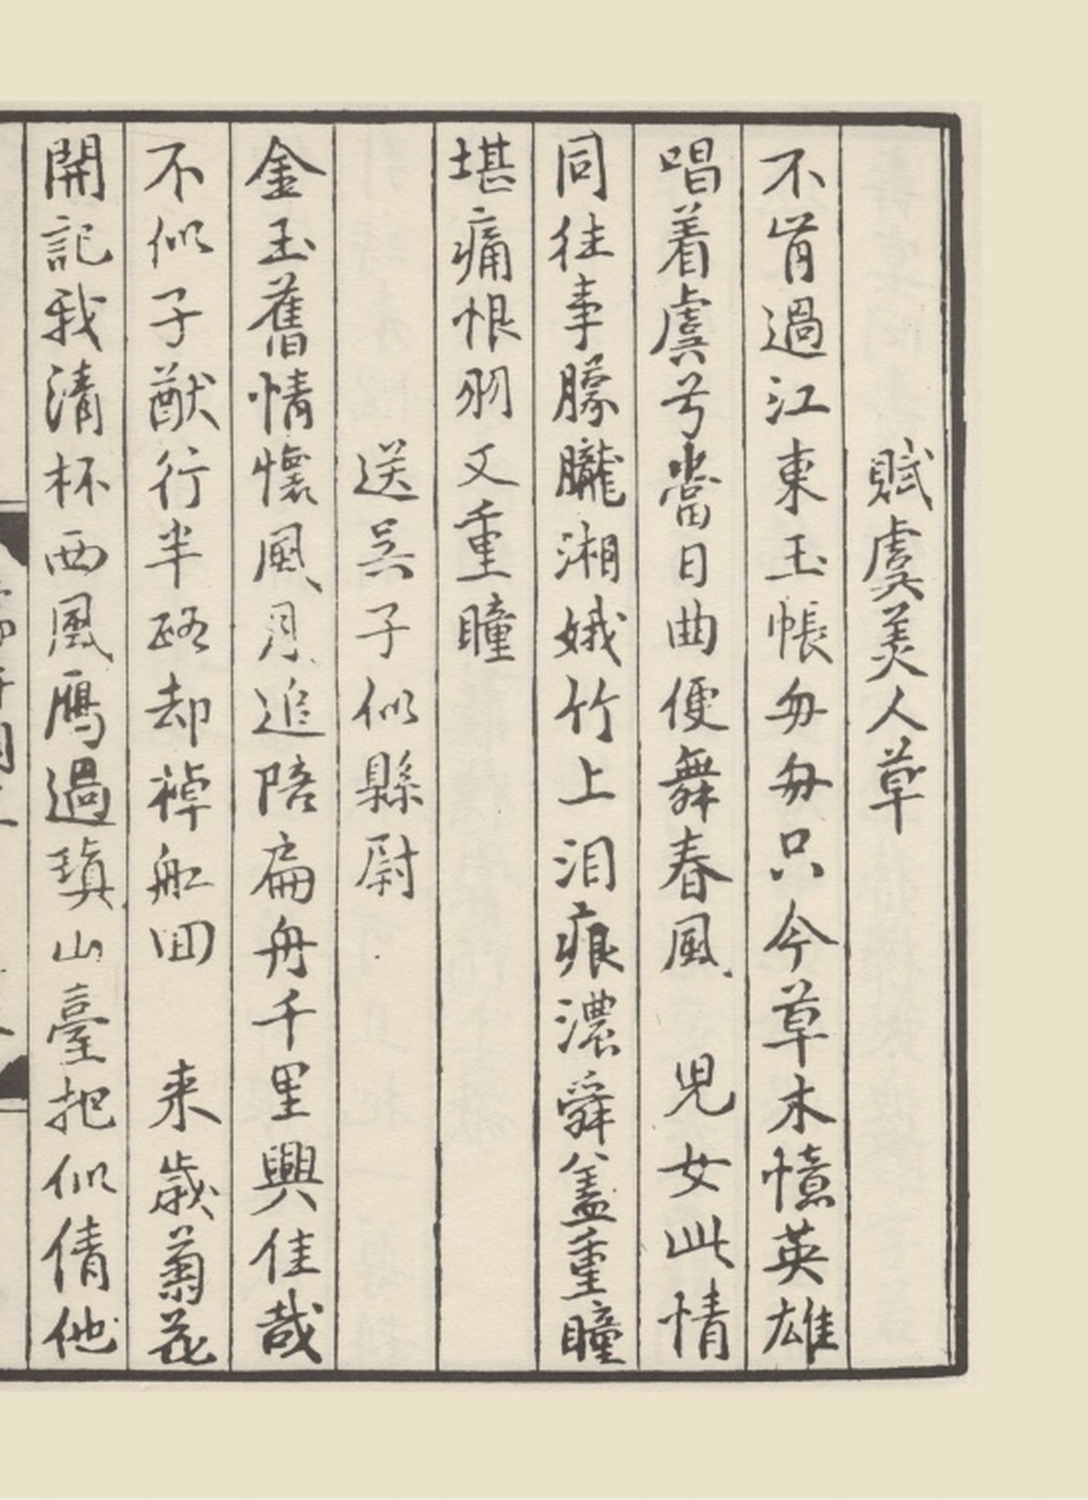 賦虞美人草
不肯過江東玉帳匆匆只今草木憶英雄
唱着虞兮當日曲便舞春風　兒女此情
同往事朦朧湘娥竹上泪痕濃舜盖重瞳
堪痛恨羽又重瞳
送吳子似縣尉
金玉舊情懷風月追陪扁舟千里興佳哉
不似子猷行半路却棹船回　来歲菊花
開記我清杯西風鴈過瑱山臺把似倩他